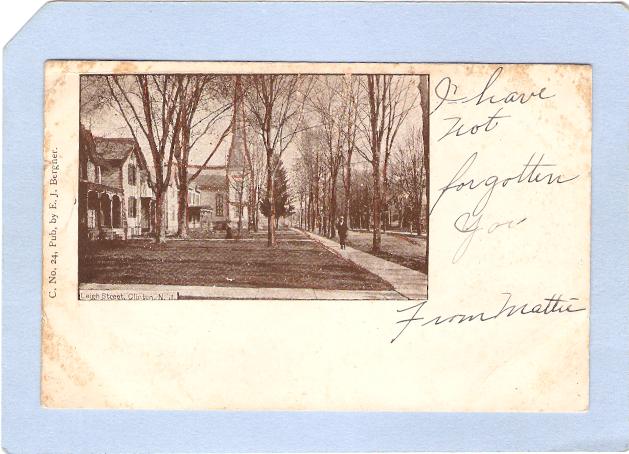 C. No. 24, Pub, by E. J. Bergner.
Leigh Street, Clinton, N. J.
I have
not
forgotten
You
From Mattie